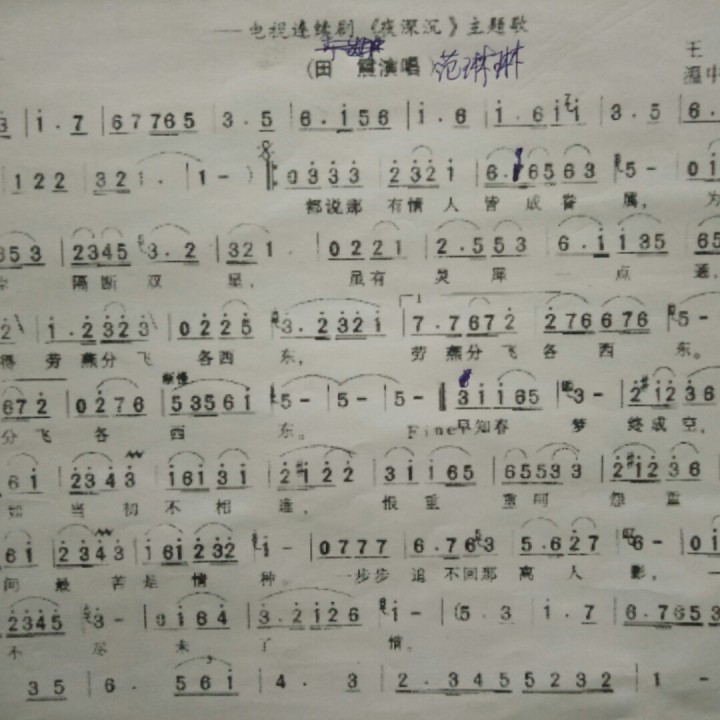 ——电视连续剧《夜深沉》主题歌
(田 震演唱) 范琳琳
王
温中
3 | 1 . 7 | 6 7 7 6 5 | 3 . 5 | 6 . 1 5 6 | 1 . 6 | 1 . 6 1 1 | 3 . 5 | 6 .
| 1 2 2 | 3 2 1 . | 1 - ) 0 3 3 3 | 2 3 2 1 | 6 . 6 5 6 3 | 5 - | 0 1
都说那 有情人 皆成眷属, 为
3 5 3 | 2 3 4 5 3 . 2 | 3 2 1 . | 0 2 2 1 | 2 . 5 5 3 | 6 . 1 1 3 5 | 6 5
隔断双星, 虽有灵犀一点通,
2 | 1 . 2 3 2 3 | 0 2 2 5 | 3 . 2 3 2 1 | 7 . 7 6 7 2 | 2 7 6 6 7 6 | 5 -
得劳燕分飞各西东, 劳燕分飞各西东。
渐慢
6 7 2 | 0 2 7 6 | 5 3 5 6 1 | 5 - | 5 - | 5 - | 3 1 1 6 5 | 3 - | 2 1 2 3 6
分飞各西东。 Fine 早知春梦终成空,
6 1 | 2 3 4 3 | 1 6 1 3 1 | 2 1 2 2 | 3 1 1 6 5 | 6 5 5 3 3 | 2 1 2 3 6
如当初不相逢, 恨重重呵怨重
6 1 | 2 3 4 3 | 1 6 1 2 3 2 | 1 - | 0 7 7 7 | 6 . 7 6 3 | 5 . 6 2 7 | 6 - | 0 1
间最苦是情种。 一步步追不回那离人影, 一
2 3 4 5 | 3 - | 0 1 6 4 | 3 . 2 1 2 6 | 1 - | (5 . 3 | 1 . 7 | 6 . 7 6 5 3
不尽未了情。
3 5 | 6 . | 5 6 1 | 4 . 3 | 2 . 3 4 5 5 2 3 2 | 1 -